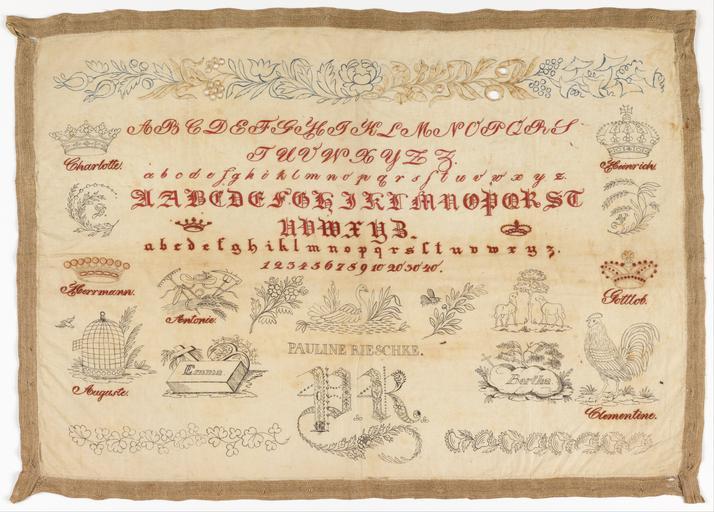 A B C D E F G H I K L M N O P Q R S
T U V W X Y Z Z.
Charlotte.
Heinrich.
a b c d e f g h i k l m n o p q r s ſ t u v w x y z.
A A B C D E F G H I K L M N O P Q R S T
U V W X Y Z.
a b c d e f g h i k l m n o p q r s ſ t u v w x y z.
1 2 3 4 5 6 7 8 9 10 20 30 40.
Herrmann.
Gottlob.
Antonie.
PAULINE RIESCHKE.
Emma
Bertha
Auguste.
Clementine.
PR